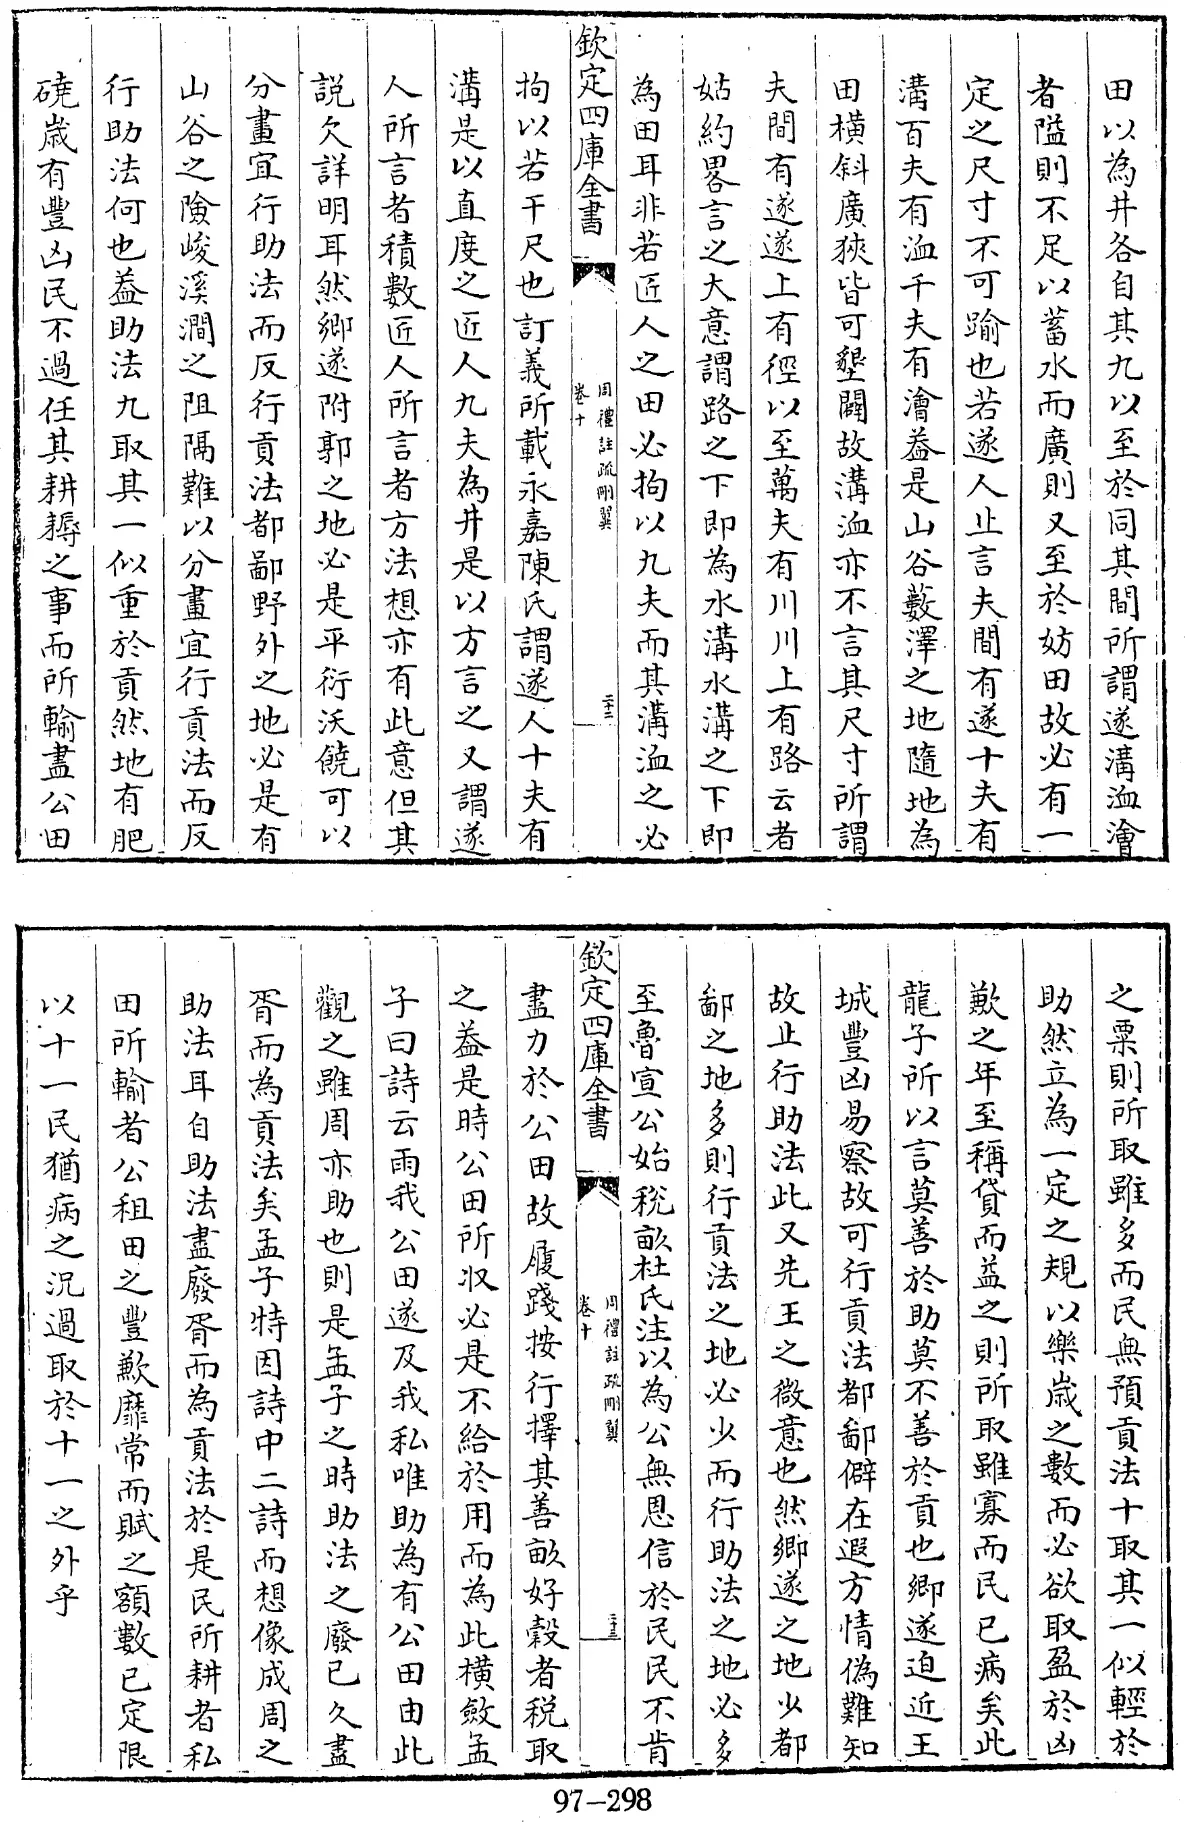 田以為井各自其九以至於同其間所謂遂溝洫澮
者隘則不足以蓄水而廣則又至於妨田故必有一
定之尺寸不可踰也若遂人止言夫間有遂十夫有
溝百夫有洫千夫有澮葢是山谷藪澤之地隨地為
田橫斜廣狹皆可墾闢故溝洫亦不言其尺寸所謂
夫間有遂遂上有徑以至萬夫有川川上有路云者
姑約畧言之大意謂路之下即為水溝水溝之下即
為田耳非若匠人之田必拘以九夫而其溝洫之必
欽定四庫全書
周禮註疏刪翼
卷十
二十二
拘以若干尺也訂義所載永嘉陳氏謂遂人十夫有
溝是以直度之匠人九夫為井是以方言之又謂遂
人所言者積數匠人所言者方法想亦有此意但其
説欠詳明耳然鄉遂附郭之地必是平衍沃饒可以
分畫宜行助法而反行貢法都鄙野外之地必是有
山谷之險峻溪澗之阻隔難以分畫宜行貢法而反
行助法何也葢助法九取其一似重於貢然地有肥
磽歳有豐凶民不過任其耕耨之事而所輸盡公田
之粟則所取雖多而民無預貢法十取其一似輕於
助然立為一定之規以樂歳之數而必欲取盈於凶
歉之年至稱貸而益之則所取雖寡而民已病矣此
龍子所以言莫善於助莫不善於貢也鄉遂迫近王
城豐凶易察故可行貢法都鄙僻在遐方情偽難知
故止行助法此又先王之微意也然鄉遂之地少都
鄙之地多則行貢法之地必少而行助法之地必多
至魯宣公始稅畝杜氏注以為公無恩信於民民不肯
欽定四庫全書
周禮註疏刪翼
卷十
二十三
盡力於公田故履踐按行擇其善畝好穀者税取
之葢是時公田所收必是不給於用而為此橫斂孟
子曰詩云雨我公田遂及我私唯助為有公田由此
觀之雖周亦助也則是孟子之時助法之廢已久盡
胥而為貢法矣孟子特因詩中二詩而想像成周之
助法耳自助法盡廢胥而為貢法於是民所耕者私
田所輸者公租田之豐歉靡常而賦之額數已定限
以十一民猶病之況過取於十一之外乎
97-298